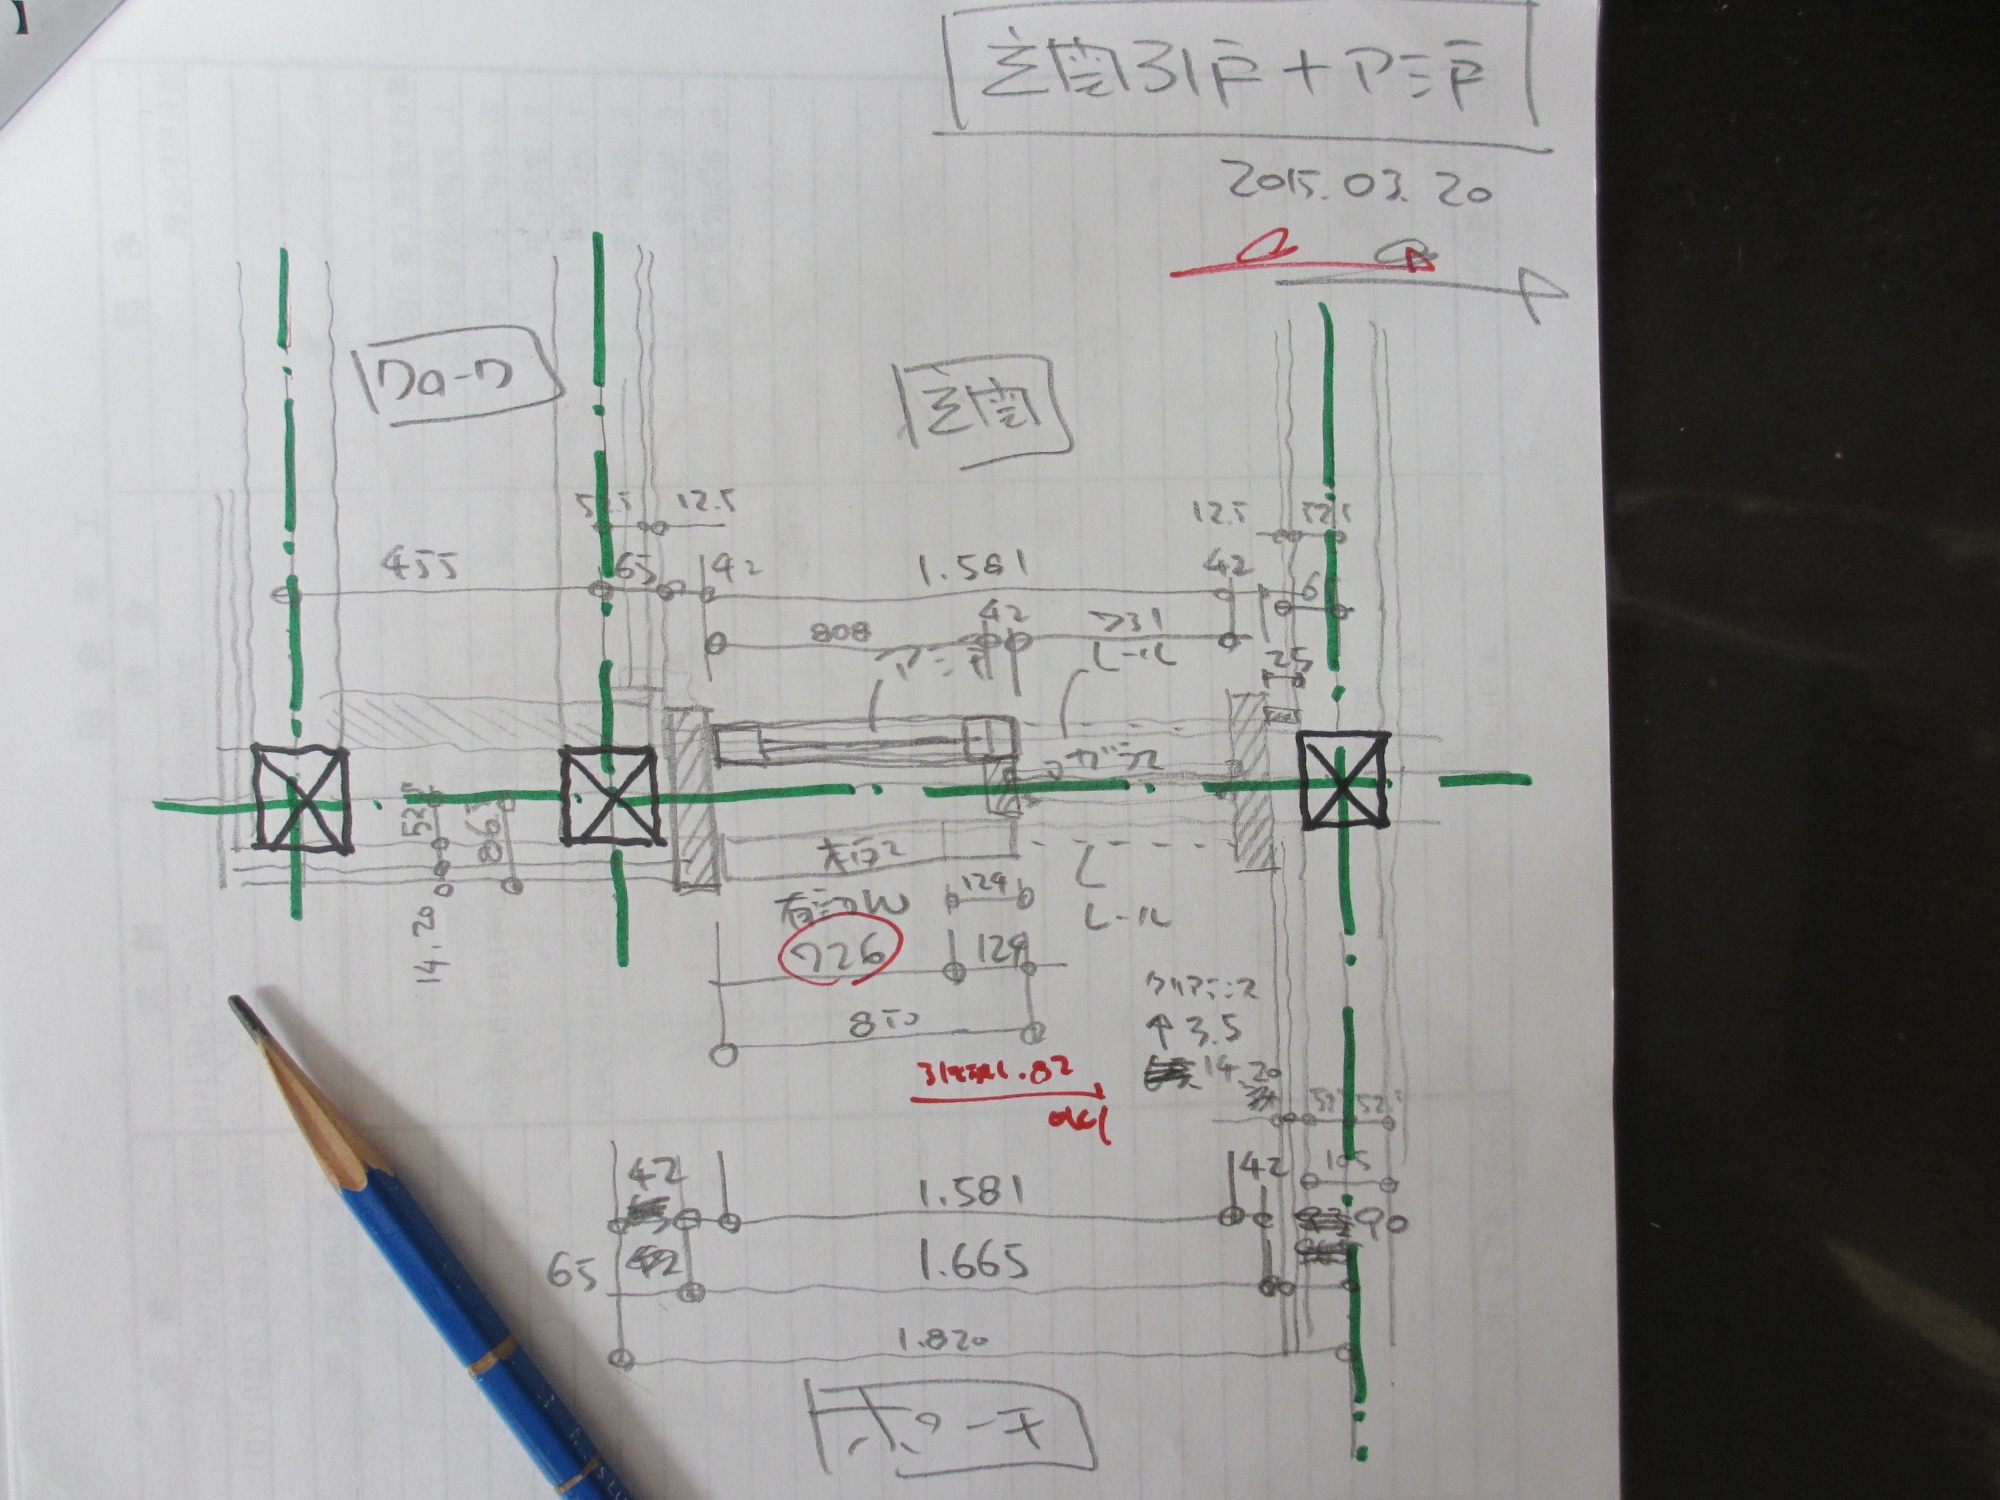 】
玄関引戸+アミ戸
2015.03.20
クローク
玄関
52.5
12.5
12.5
52.5
455
65
42
1.581
42
808
42
731
25
アミ戸
レール
ガラス
52.5
86.5
14.20
木戸
有効W
129
レール
726
129
850
クリアランス
↑3.5
14.20
引残し.82
OK!
52.5
52.5
105
42
1.581
42
90
65
1.665
1.820
ポーチ